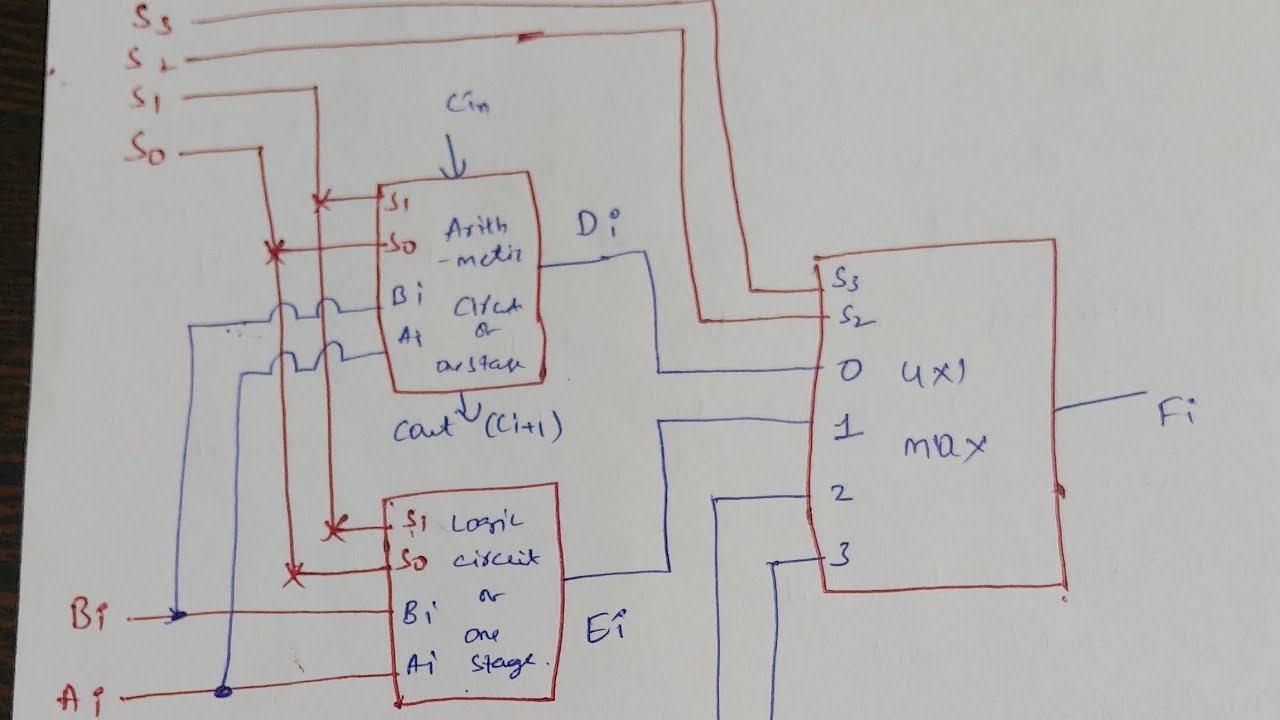 S3
S2
S1
S0
Cin
S1
S0
Bi
Ai
Arith
-metic
Circut
or
one stage
Di
Cout (Ci+1)
S1
S0
Bi
Ai
Logic
circuit
or
one
stage.
Ei
Bi
Ai
S3
S2
0
1
2
3
4x1
max
Fi